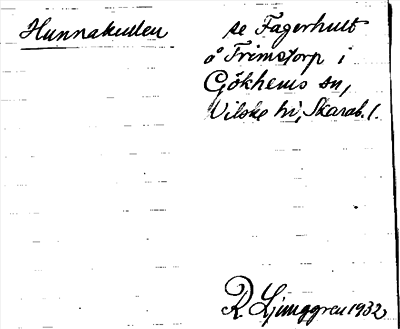 Hunnakullen
se Fagerhult
å Trimstorp i
Gökhems sn,
Vilske hd, Skarab. l.
R. Ljunggren 1932